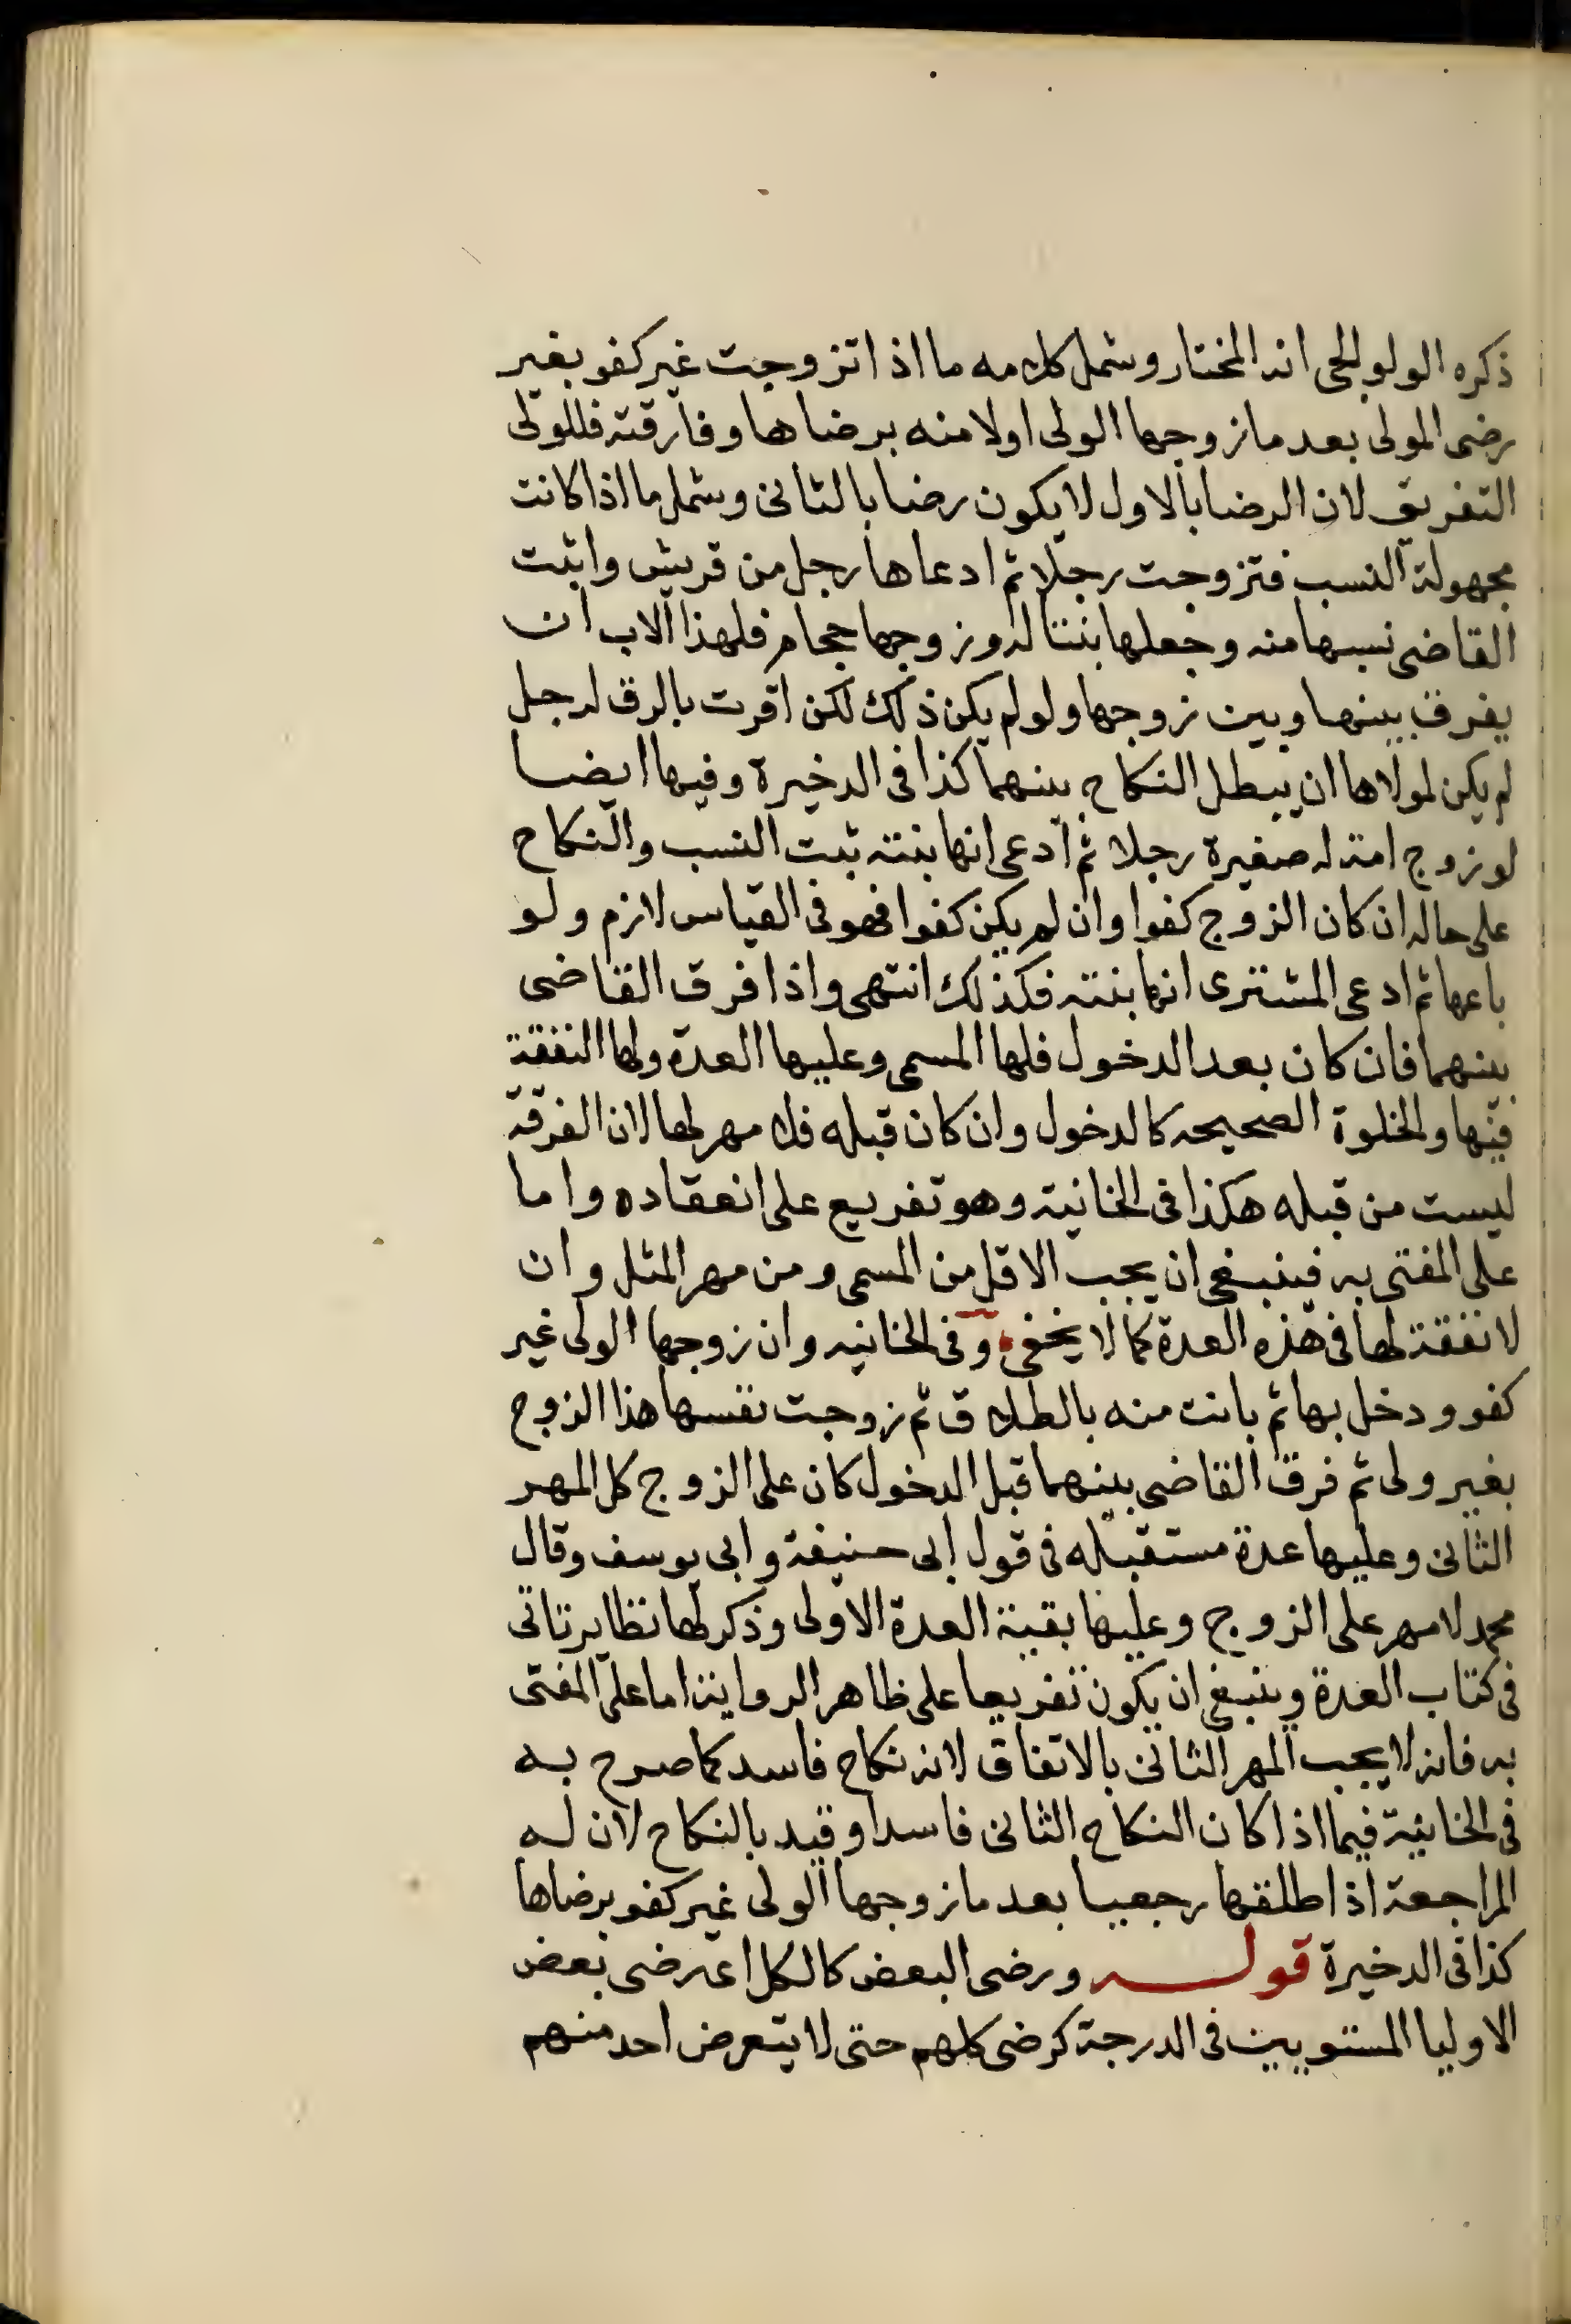 ذكره الولوالجى انه المختار وشمل كلامه ما اذا تزوجت غير كفو بغير
رضى المولى بعد ما زوجها الولى اولا منه برضاها وفارقته فللولى
التفريق لان الرضا بالاول لا يكون رضا بالثانى وشمل ما اذا كانت
مجهولة النسب فتزوجت رجلا ثم ادعاها رجل من قريش واثبت
القاضى نسبها منه وجعلها بنتا له وزوجها حجام فلهذا الاب ان
يفرق بينها وبين زوجها ولو لم يكن ذلك لكن اقرت بالرق لرجل
لم يكن لمولاها ان يبطل النكاح بينهما كذا فى الدخيرة وفيها ايضا
لو زوج امة له صغيرة رجلا ثم ادعى انها بنته ثبت النسب والنكاح
على حاله ان كان الزوج كفوا وان لم يكن كفوا فهو فى القياس لازم ولو
باعها ثم ادعى المشترى انها بنته فكذلك انتهى واذا فرق القاضى
بينهما فان كان بعد الدخول فلها المسمى وعليها العدة ولها النفقة
فيها والخلوة الصحيحه كالدخول وان كان قبله فلا مهر لها لان الفرقة
ليست من قبله هكذا فى الخانية وهو تفريع على انعقاده واما
على المفتى به فينبغى ان يجب الاقل من المسمى ومن مهر المثل وان
لا نفقة لها فى هذه العدة كما لا يخفى وفى الخانيه وان زوجها الولى غير
كفو ودخل بها ثم بانت منه بالطلاق ثم زوجت نفسها هذا الزوج
بغير ولى ثم فرق القاضى بينهما قبل الدخول كان على الزوج كل المهر
الثانى وعليها عدة مستقبله فى قول ابى حنيفة وابى يوسف وقال
محمد لا مهر على الزوج وعليها بقية العدة الاولى وذكر لها نظاير تاتى
فى كتاب العدة وينبغى ان يكون تفريعا على ظاهر الرواية اما على المفتى
به فانه لا يجب المهر الثانى بالاتفاق لانه نكاح فاسد كما صرح به
فى الخانية فيما اذا كان النكاح الثانى فاسدا وقيد بالنكاح لان له
المراجعة اذا طلقها رجعيا بعد ما زوجها الولى غير كفو برضاها
كذا فى الدخيرة قوله ورضى البعض كالكل اى رضى بعض
الاوليا المستويين فى الدرجة كرضى كلهم حتى لا يتعرض احد منهم